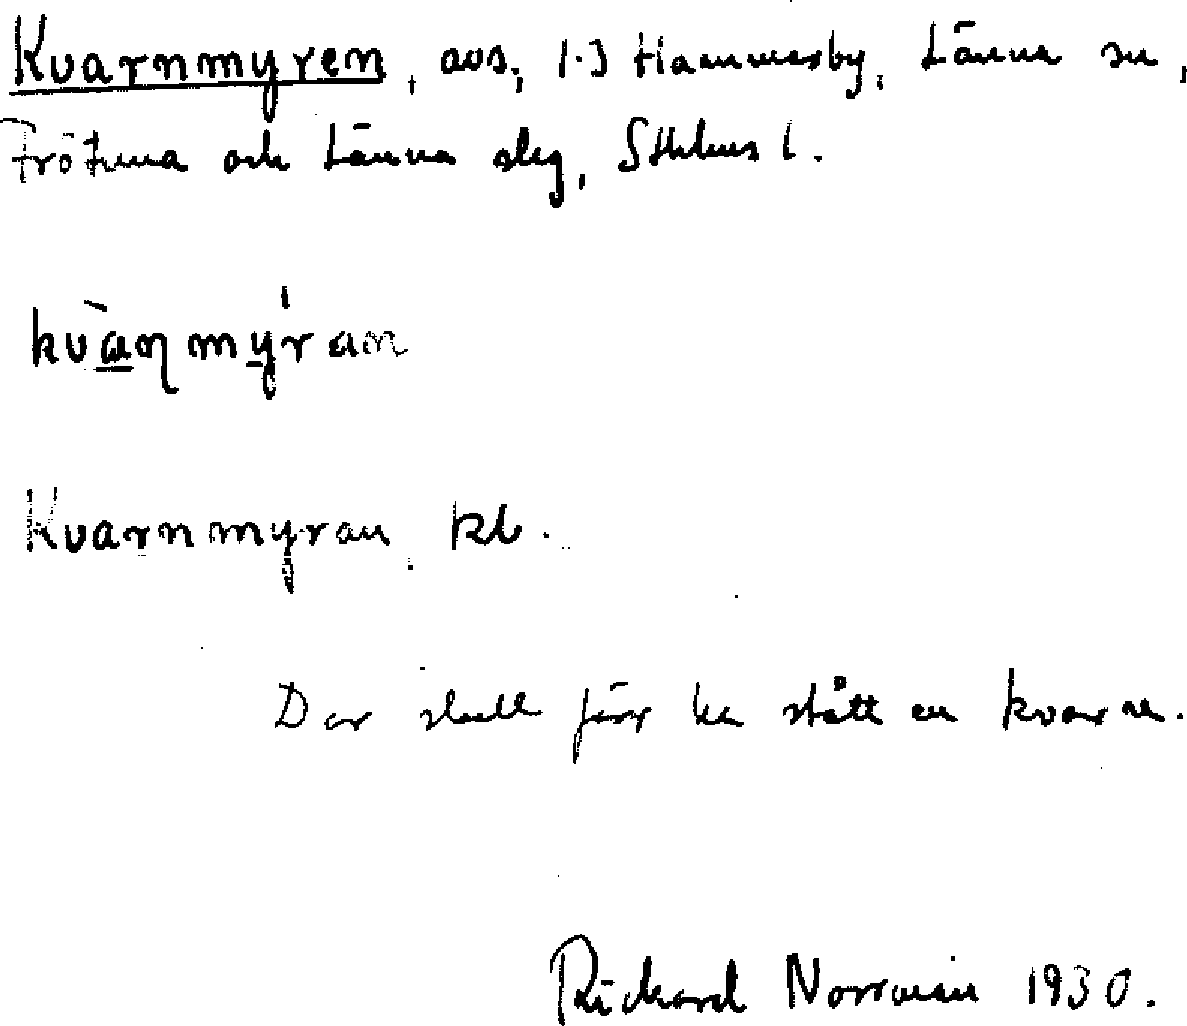 Kvarnmyren, avs., 1-3 Hammarby, Länna sn,
Frötuna och Länna slg, Sthlms l.
kvàɳmy̍ran
Kvarnmyran, kb.
Där skall förr ha stått en kvarn.
Rickard 1930.